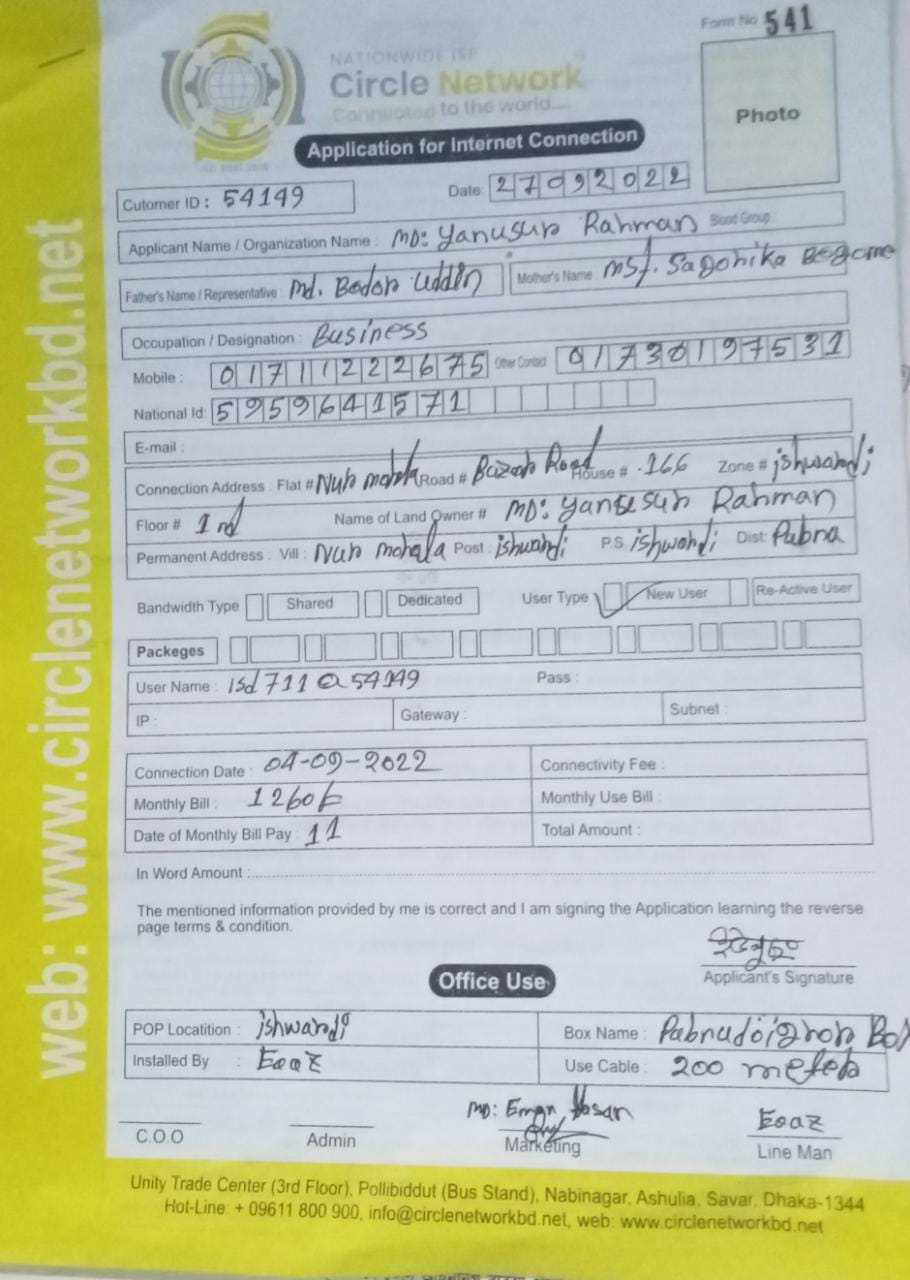 Form No 541
NATIONWIDE ISP
Circle Network
Connected to the world....
Photo
Application for Internet Connection
Cutomer ID : 54149 Date: 27092022
Applicant Name / Organization Name : MD: Yanusur Rahman Blood Group :
Father's Name / Representative : Md. Bodor Uddin Mother's Name : mst. Sagorika Begome
Occupation / Designation : Business
Mobile : 01711222675 Other Contact 01730197531
National Id: 5959641571
E-mail :
Connection Address : Flat # Nur mohala Road # Bazar Road House # .166 Zone # ishwardi
Floor # 1 nd Name of Land Owner # MD: Yanusur Rahman
Permanent Address : Vill : Nur mohala Post : ishwardi P.S ishwordi Dist: Pabna
Bandwidth Type Shared Dedicated User Type New User Re-Active User
Packeges
User Name : isd711@54149 Pass :
IP : Gateway : Subnet :
Connection Date : 04-09-2022 Connectivity Fee :
Monthly Bill : 1260৳ Monthly Use Bill :
Date of Monthly Bill Pay : 11 Total Amount :
In Word Amount :
The mentioned information provided by me is correct and I am signing the Application learning the reverse
page terms & condition.
Applicant's Signature
Office Use
POP Locatition : ishwardi Box Name : Box
Installed By : Eoaz Use Cable : 200 meter
MD: Eman Hosan Eoaz
C.O.O Admin Marketing Line Man
Unity Trade Center (3rd Floor), Pollibiddut (Bus Stand), Nabinagar, Ashulia, Savar, Dhaka-1344
Hot-Line: + 09611 800 900, info@circlenetworkbd.net, web: www.circlenetworkbd.net
web: www.circlenetworkbd.net